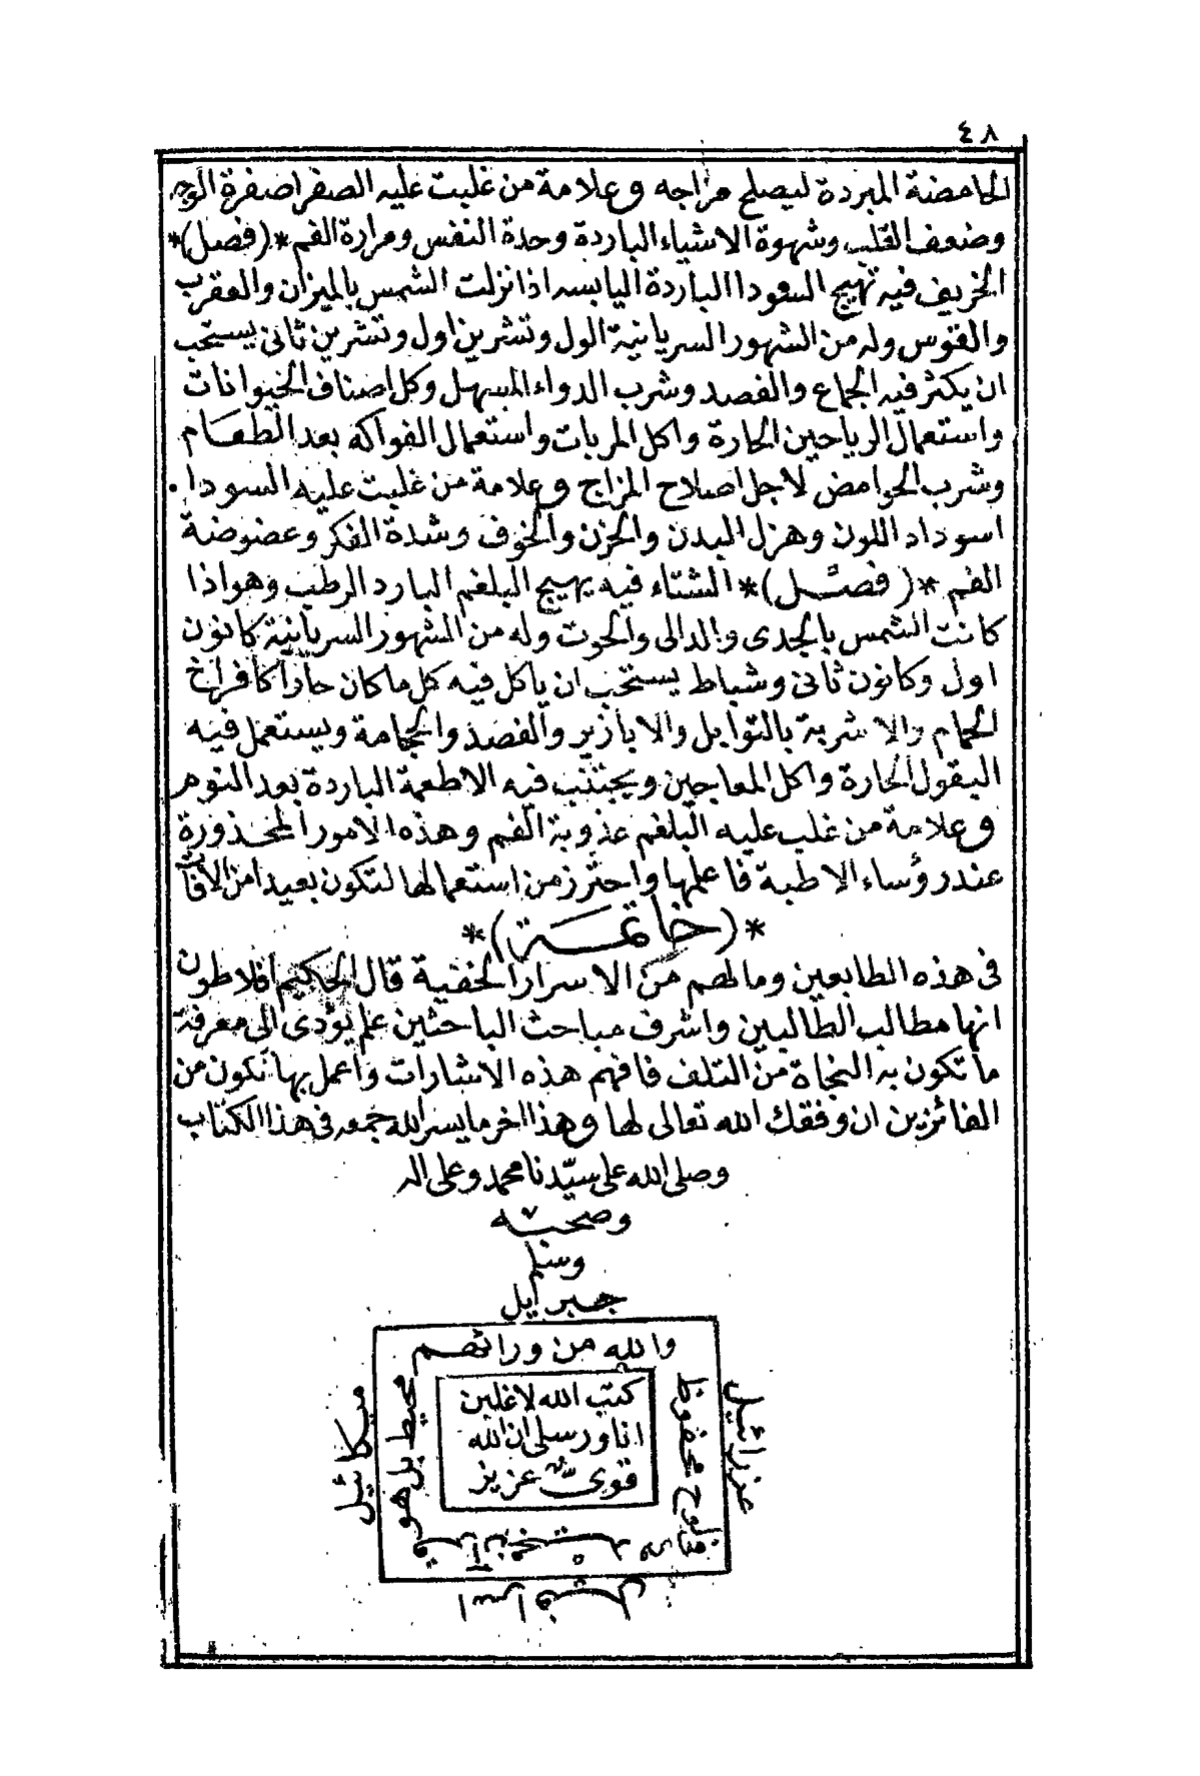 ٤٨
الحامضة المبردة ليصلح مزاجه وعلامة من غلبت عليه الصفراصفرة الوجه
وضعف القلب وشهوة الاشياء الباردة وحدة النفس ومرارة الفم *(فصل)*
الخريف فيه تهيج السودا الباردة اليابسه اذا نزلت الشمس بالميزان والعقرب
والقوس وله من الشهور السريانية الول وتشرين اول وتشرين ثانى يستحب
ان يكثر فيه الجماع والفصد وشرب الدواء المسهل وكل اصناف الحيوانات
واستعمال الرياحين الحارة واكل المربات واستعمال الفواكه بعد الطعام
وشرب الحوامض لاجل اصلاح المزاج وعلامة من غلبت عليه السودا
اسوداد اللون وهزل البدن والحزن والخوف وشدة الفكر وعضوضة
الفم *(فصل)* الشتاء فيه يهيج البلغم البارد الرطب وهو اذا
كانت الشمس بالجدى والدالى والحوت وله من الشهور السريانية كانون
اول وكانون ثانى وشباط يستحب ان ياكل فيه كل ماكان حارا كافراخ
الحمام والاشربة بالتوابل والابازير والفصد والحجامة ويستعمل فيه
البقول الحارة واكل المعاجين ويجتنب فيه الاطعمة الباردة بعد النوم
وعلامة من غلب عليه البلغم عذوبة الفم وهذه الامور المحذورة
عند رؤساء الاطبة فاعلمها واحترز من استعمالها لتكون بعيدا من الافات
*(خاتمة)*
فى هذه الطابعين ومالهم من الاسرار الخفية قال الحكيم افلاطون
انها مطالب الطالبين واشرف مباحث الباحثين علم يؤدى الى معرفة
ما تكون به النجاة من التلف فافهم هذه الاشارات واعمل بها تكون من
الفائزين ان وفقك الله تعالى لها وهذا اخر مايسر الله جمعه فى هذا الكتاب
وصلى الله على سيّدنا محمد وعلى اله
وصحبه
وسلم
جبرايل
والله من ورائهم
محيط بل هو
قرآن مجيد
فى لوح محفوظ
كتب الله لاغلبن
انا ورسلى ان الله
قوىّ عزيز
عزرائيل
ميكائيل
اسرافيل